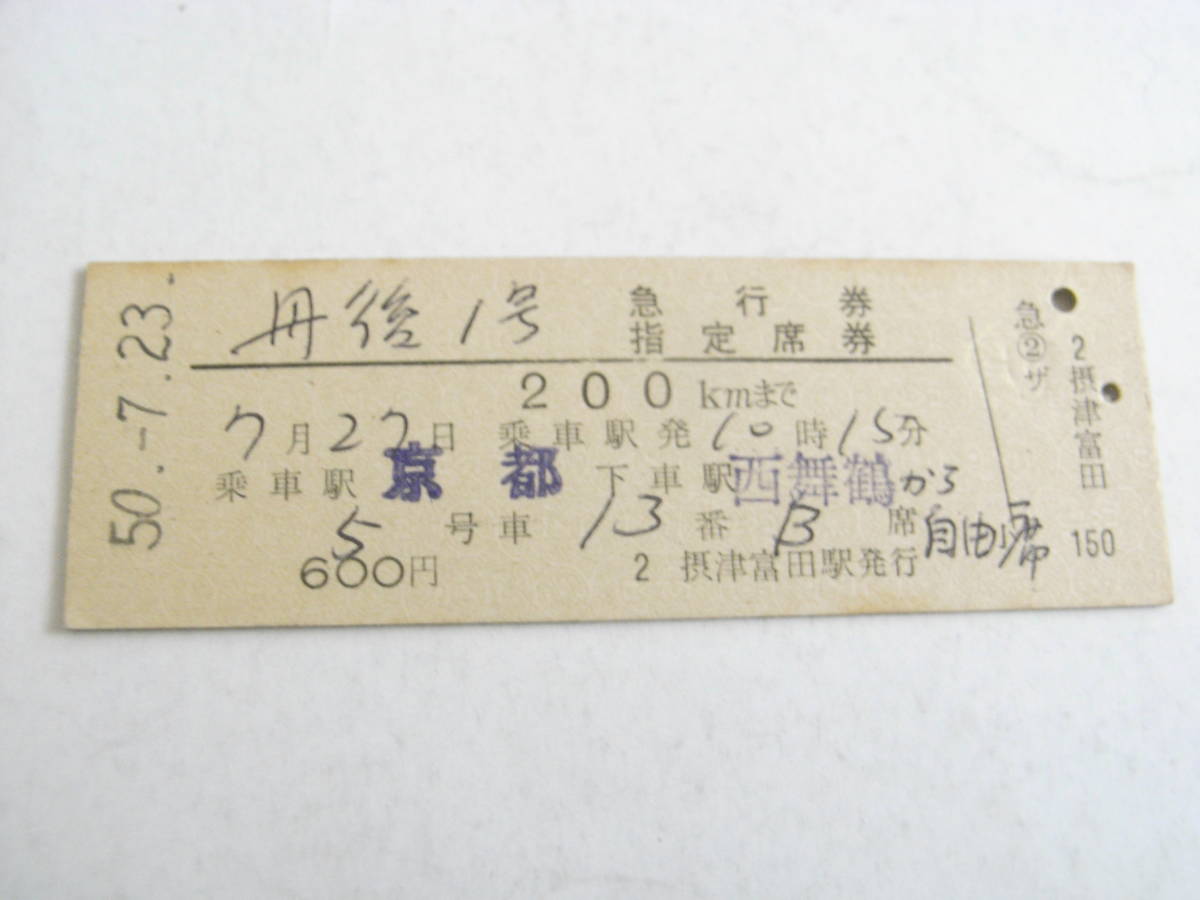 50.-7.23.
丹後1号 急行券
指定席券
200kmまで
7月27日 乗車駅発10時15分
乗車駅 京都 下車駅 西舞鶴から
5号車 13番B席 自由席
600円 2 摂津富田駅発行
急②ザ
2摂津富田
150